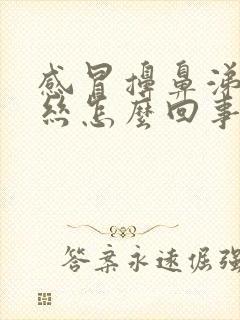 感冒擤鼻涕
丝怎麽回事
答案永远倔强